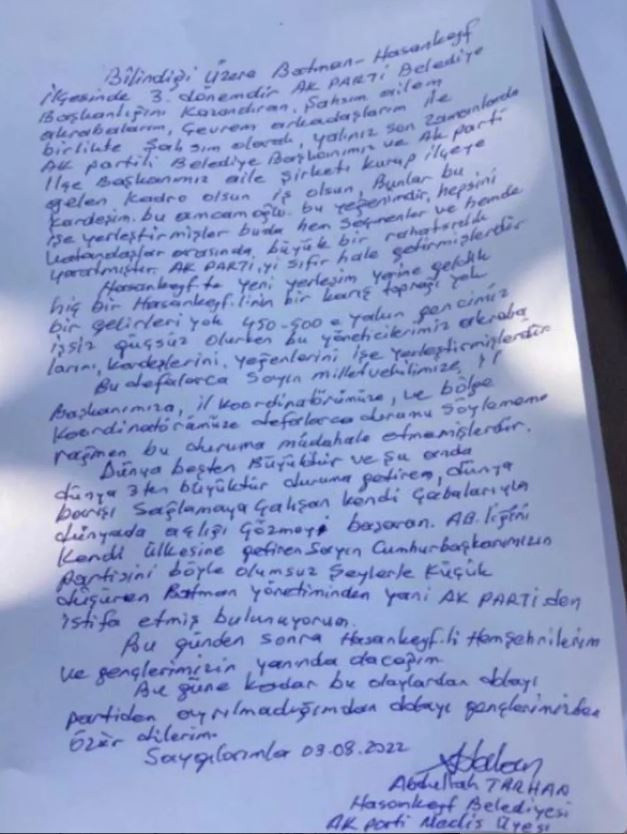 Bilindiği üzere Batman-Hasankeyf
ilçesinde 3. dönemdir AK PARTİ Belediye
Başkanlığını Kazandıran, Şahsım ailem
akrabalarım, Çevrem arkadaşlarım ile
birlikte Şahsım olarak, yalnız son zamanlarda
AK partili Belediye Başkanımız ve AK parti
ilçe Başkanımız aile şirketi kurup ilçeye
gelen kadro olsun iş olsun, Bunlar bu
kardeşim. bu amcamoğlu. bu yeğenimdir, hepsini
işe yerleştirmişler buda hem Seçmenler ve hemde
Vatandaşlar arasında, büyük bir rahatsızlık
yaratmıştır. AK PARTİ.yi sıfır hale getirmişlerdir
Hasankeyf.te yeni yerleşim yerine geldik
hiç bir Hasankeyf.linin bir karış toprağı yok
bir gelirleri yok 450-500 e yakın gencimiz
işsiz güçsüz olurken bu yöneticilerimiz akraba
larını, kardeşlerini, yeğenlerini işe yerleştirmişlerdir
Bu defalarca Sayın milletvekilimize, il
Başkanımıza, il koordinatörümüze, ve bölge
Koordinatörümüze defalarca durumu Söylememe
rağmen bu duruma müdahale etmemişlerdir.
Dünya beşten Büyüktür ve şu anda
dünya 3ten büyüktür duruma getiren, dünya
barışı Sağlamaya Çalışan kendi Çabalarıyla
dünyada açlığı Çözmeyi başaran. AB.liğini
Kendi ülkesine getiren Sayın Cumhurbaşkanımızın
Partisini böyle olumsuz Şeylerle Küçük
düşüren Batman yönetiminden yani AK PARTİ den
istifa etmiş bulunuyorum.
Bu günden sonra Hasankeyf.li Hemşehrilerim
ve gençlerimizin yanında olacağım
Bu güne kadar bu olaylardan dolayı
partiden ayrılmadığımdan dolayı gençlerimizden
Özür dilerim.
Saygılarımla 03.08.2022
Abdullah TARHAN
Hasankeyf Belediyesi
AK parti Meclis Üyesi